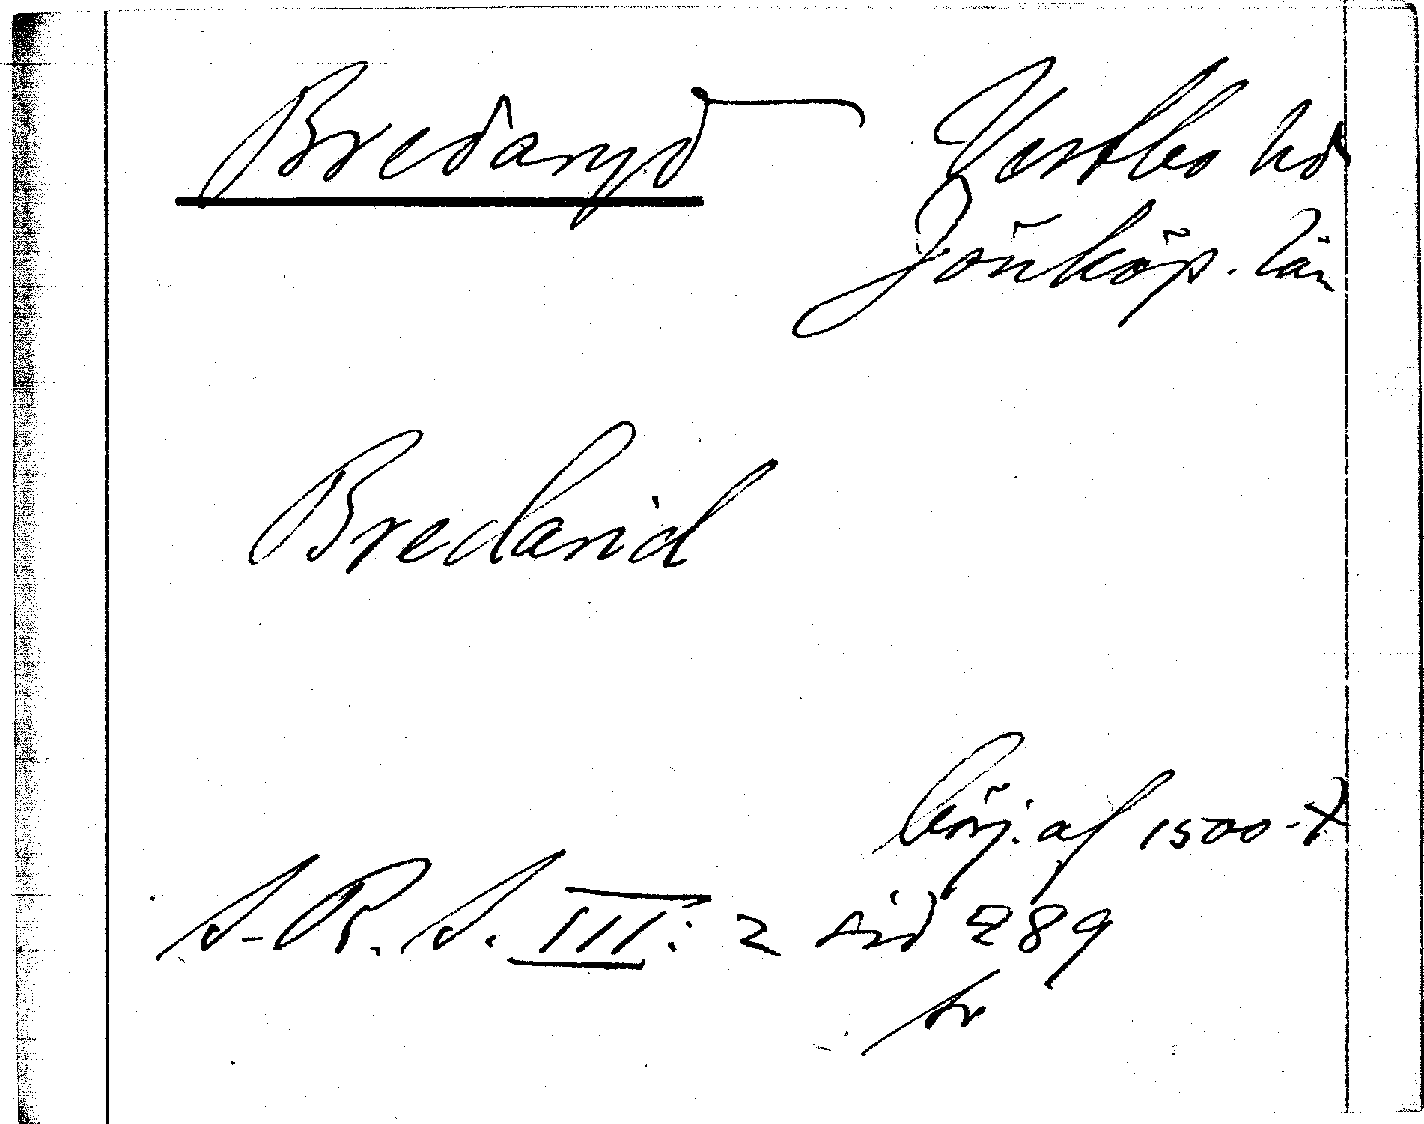 Bredaryd Vestbo hd
Jönköp. län
Bredarid
börj. af 1500-t
S. R. S. III: 2 sid 289
tr